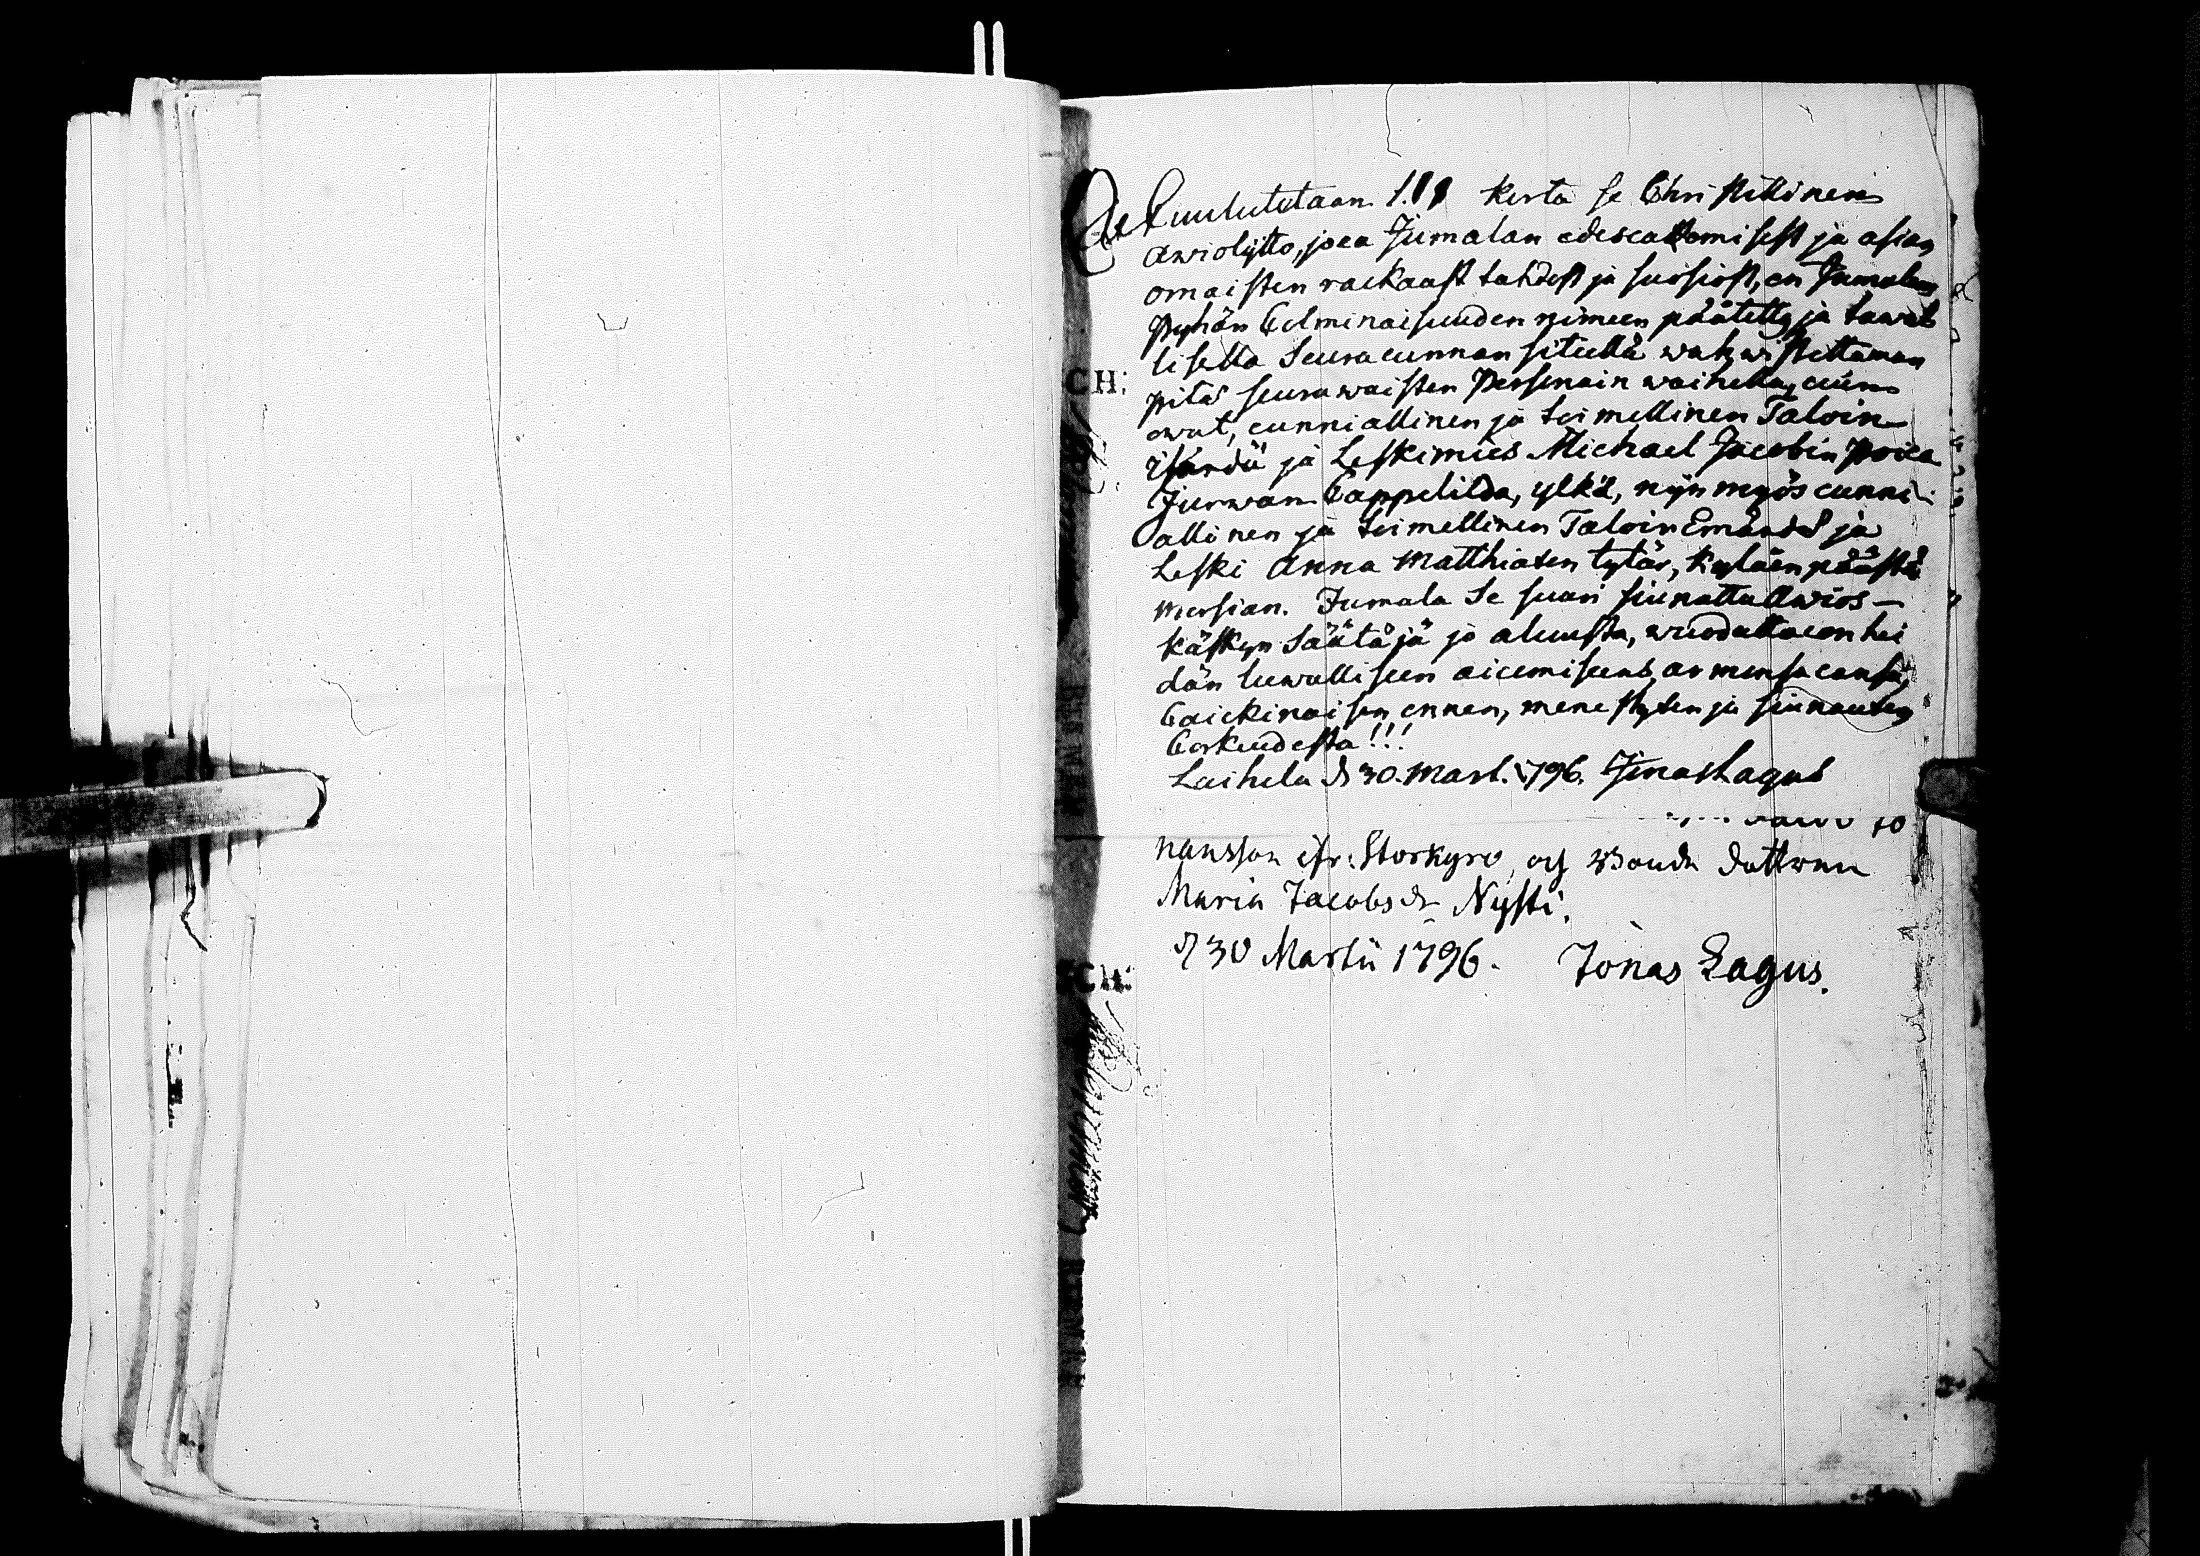 Cuulutetaan 1. kerta se Christillinen
awiolijtto, joca Jumalan edescatzomisest ja asian
omaisten rackaast tahdost ja suosiost, on Jumalan
Pyhän Colminaisuuden nimeen päätetty ja tawal
lisella Seuracunnan siteellä wahwistettaman
pitä seurawaisten Personain waihella, cuin
owat, cunniallinen ja toimellinen Taloin
Isändä ja Leskimies Michael Jacobin Poica
Jurwan Cappelilda, ylkä, nijn myös cunni-
allinen ja toimellinen Taloin Emändä ja
Leski Anna Matthiaxen tytär, Kylänpäästä
morsian. Jumala Se suuri siunattu Awios-
käskyn Säätäjä ja alcusta, wuodattacon hei
dän luwalliseen aicomiseens armonsa cansa,
Caickinaisen onnen, menestyxen ja siunauxen
Corkeudesta!!!
Laihela d 30. Mart. 1796. Jonas Lagus
nansson ifr: Storkyro, och Bonde dottren
Maria Jacobsdr Nysti.
d 30 Martii 1796. Jonas Lagus.
CH:
CH: